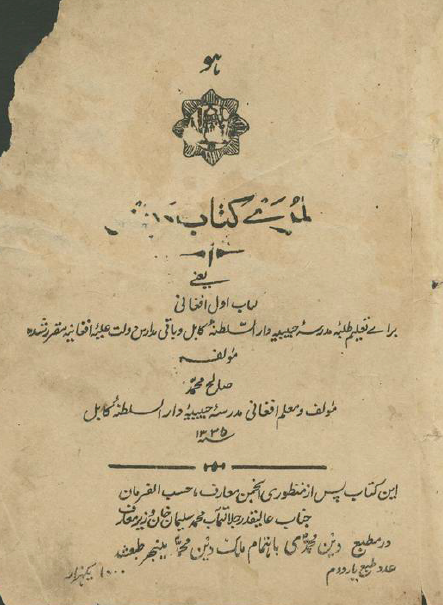 هو
لمړے کتاب د پښتو
یعنے
کتاب اول افغانی
برائے تعلیم طلبهٔ مدرسهٔ حبیبیه دار السلطنهٔ کابل و باقی مدارس دولت علیهٔ افغانیه مقرر شده
مولفه
صالح محمد
مولف و معلم افغانی مدرسهٔ حبیبیهٔ دار السلطنهٔ کابل
سنه ۱۳۳۵
این کتاب پس از منظوری انجمن معارف، حسب الفرمان
جناب عالیقدر جلالتمآب محمد سلیمان خان وزیر معارف
در مطبع دین محمدی باهتمام ملک دین محمد مینجر طبع شد
عدد طبع بار دوم ۱۰۰۰ یکهزار